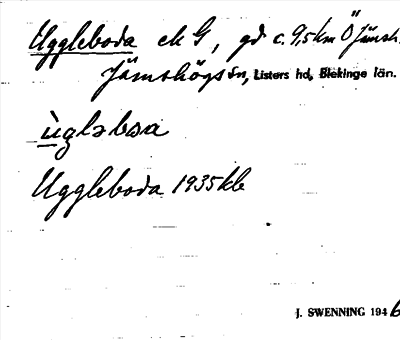 Uggleboda ek G, gd c. 9,5 km Ö Jämsh.
Jämshögs sn, Listers hd, Blekinge län.
ùgləboa
Uggleboda 1935 kb
J. SWENNING 1946